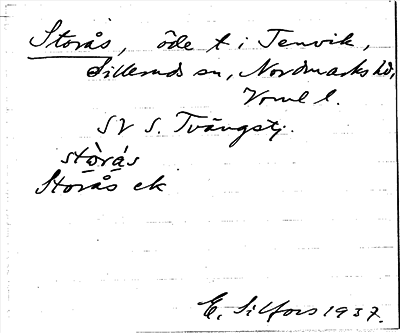 Storås, öde t i Tenvik,
Silleruds sn, Nordmarks hd,
Vrml l.
SV S. Tvängstj.
stò̱rá̱s
Storås ek
E. Silfors 1937.